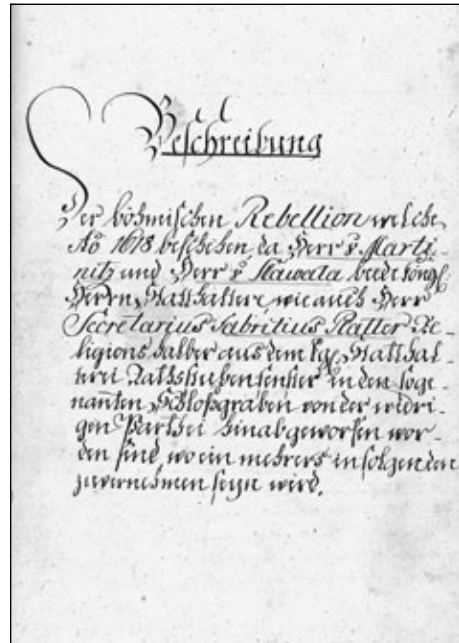 Beschreibung
Der böhmischen Rebellion welche
Aõ 1618 beschehen da Herr v Marti-
nitz und Herr v Slawata beede königl:
Herrn Statthaltere, wie auch Herr
Secretarius Fabritius Platter Re-
ligions halber aus dem kgl. Statthal-
terei Rathsstubenfenster in den soge-
nañten Schloßgraben von der widri-
gen Parthei hinabgeworfen wor-
den sind, wo ein mehrers in folgenden
zuvernehmen seyn wird.